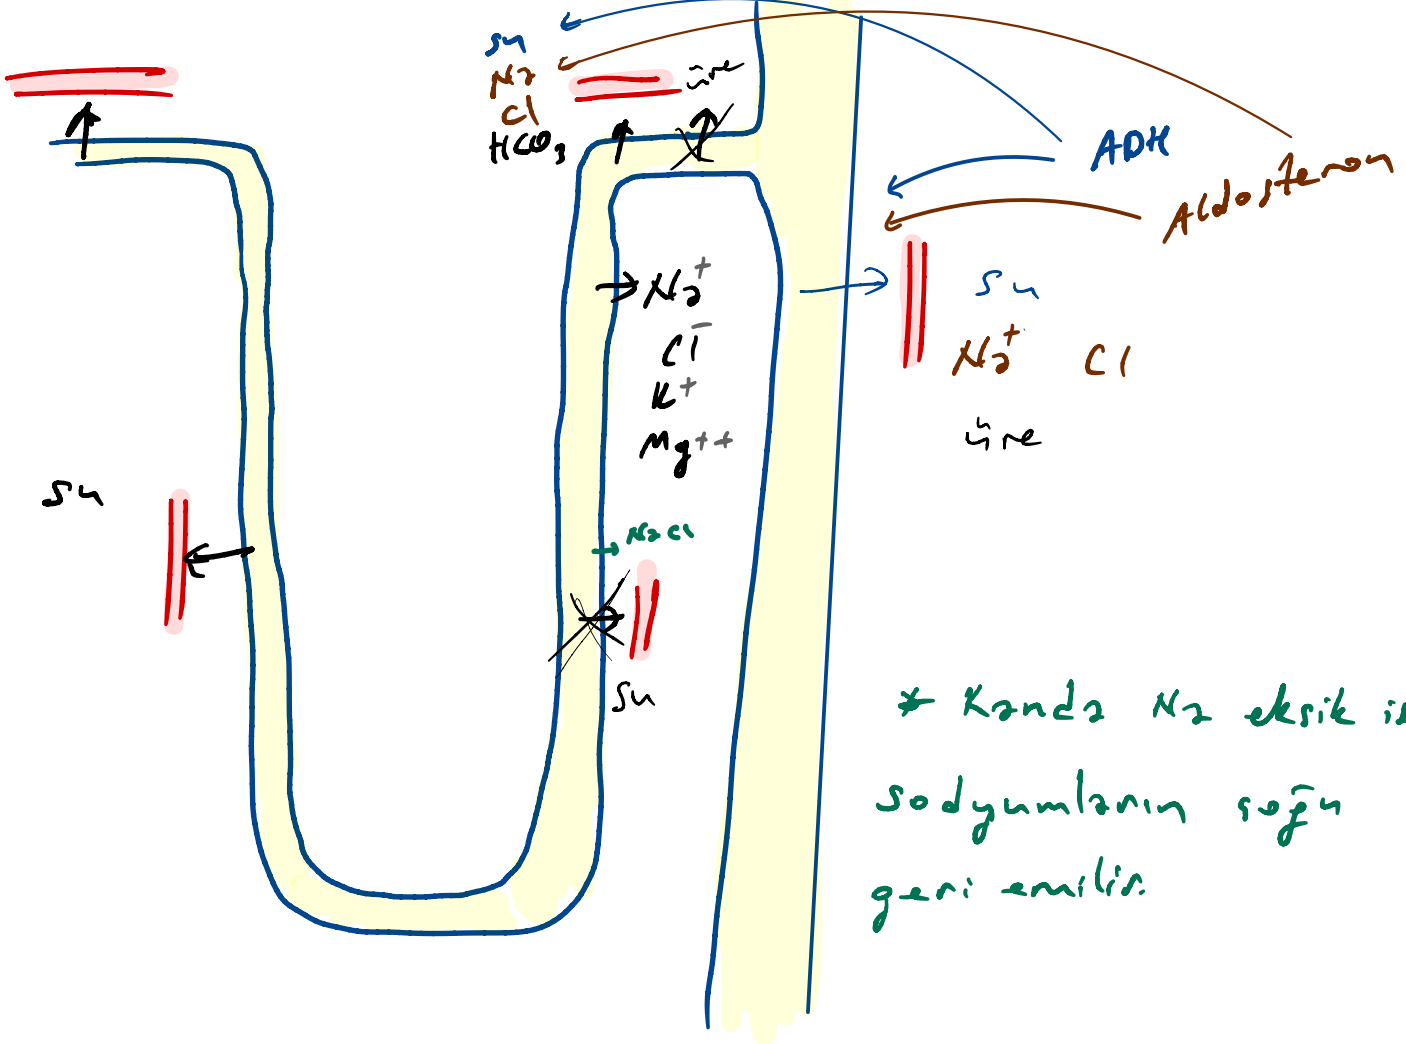 su
Na
Cl
HCO₃
üre
ADH
Aldosteron
Na⁺
Cl⁻
K⁺
Mg⁺⁺
su
Na⁺ Cl
üre
su
NaCl
su
* Kanda Na eksik is
sodyumların çoğu
geri emilir.